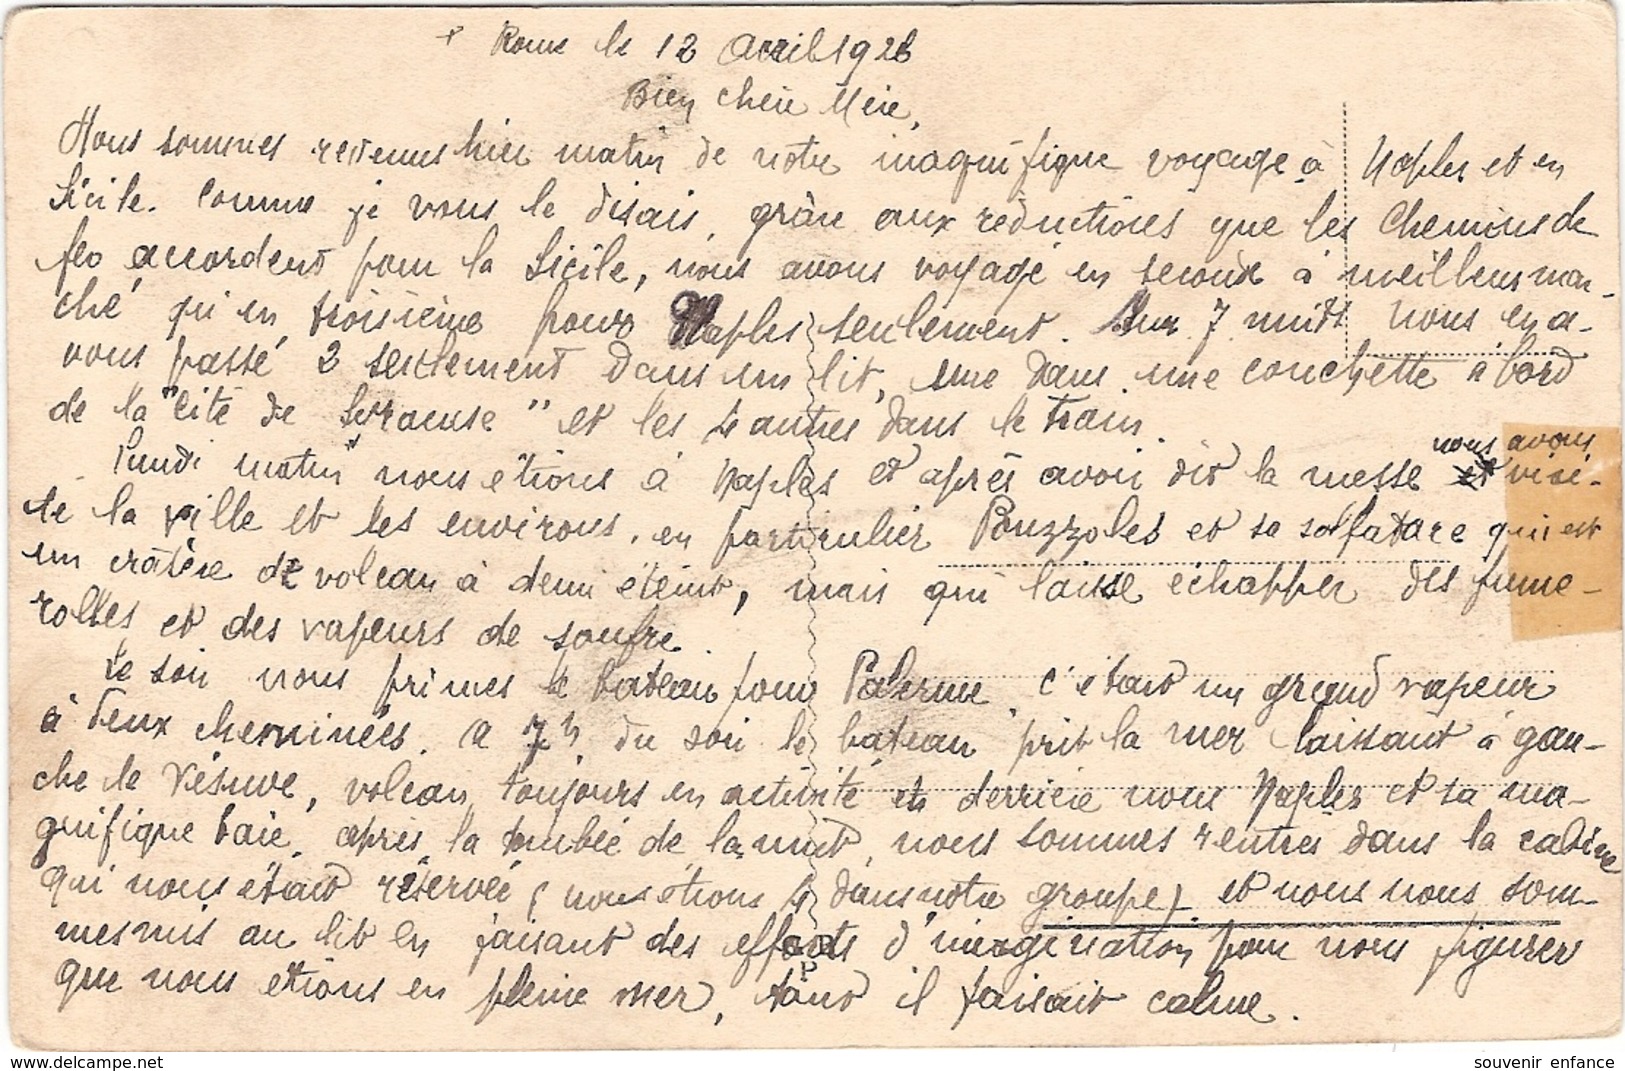 Rome le 12 Avril 1926
Bien chère Mère,
Nous sommes revenus hier matin de notre magnifique voyage à Naples et en
Sicile. Comme je vous le disais, grâce aux réductions que les Chemins de
fer accordent pour la Sicile, nous avons voyagé en seconde à meilleur mar-
ché qu'en troisième pour Naples seulement. Sur 7 nuits nous en a-
vons passé 2 seulement dans un lit, une dans une couchette à bord
de la "Cité de Syracuse" et les 4 autres dans le train.
Lundi matin nous étions à Naples et après avoir dit la messe nous avons visi-
té la ville et les environs, en particulier Pouzzoles et sa solfatare qui est
un cratère de volcan à demi éteint, mais qui laisse échapper des fume-
rolles et des vapeurs de soufre.
Le soir nous prîmes le bateau pour Palerme. C'était un grand vapeur
à deux cheminées. A 7h du soir le bateau prit la mer laissant à gau-
che le Vésuve, volcan toujours en activité et derrière nous Naples et sa ma-
gnifique baie. après la tombée de la nuit, nous sommes rentrés dans la cabine
qui nous était réservée (nous étions 4 dans notre groupe) et nous nous som-
mes mis au lit en faisant des efforts d'imagination pour nous figurer
que nous étions en pleine mer, tant il faisait calme.
souvenir enfance
http://www.delcampe.net